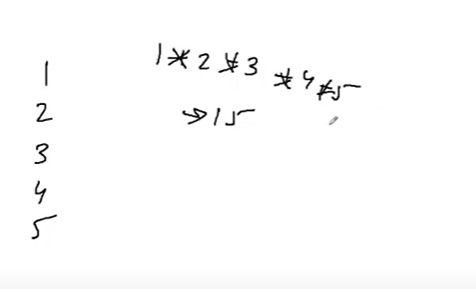 1
2
3
4
5
1 * 2 * 3 * 4 * 5
→ 15